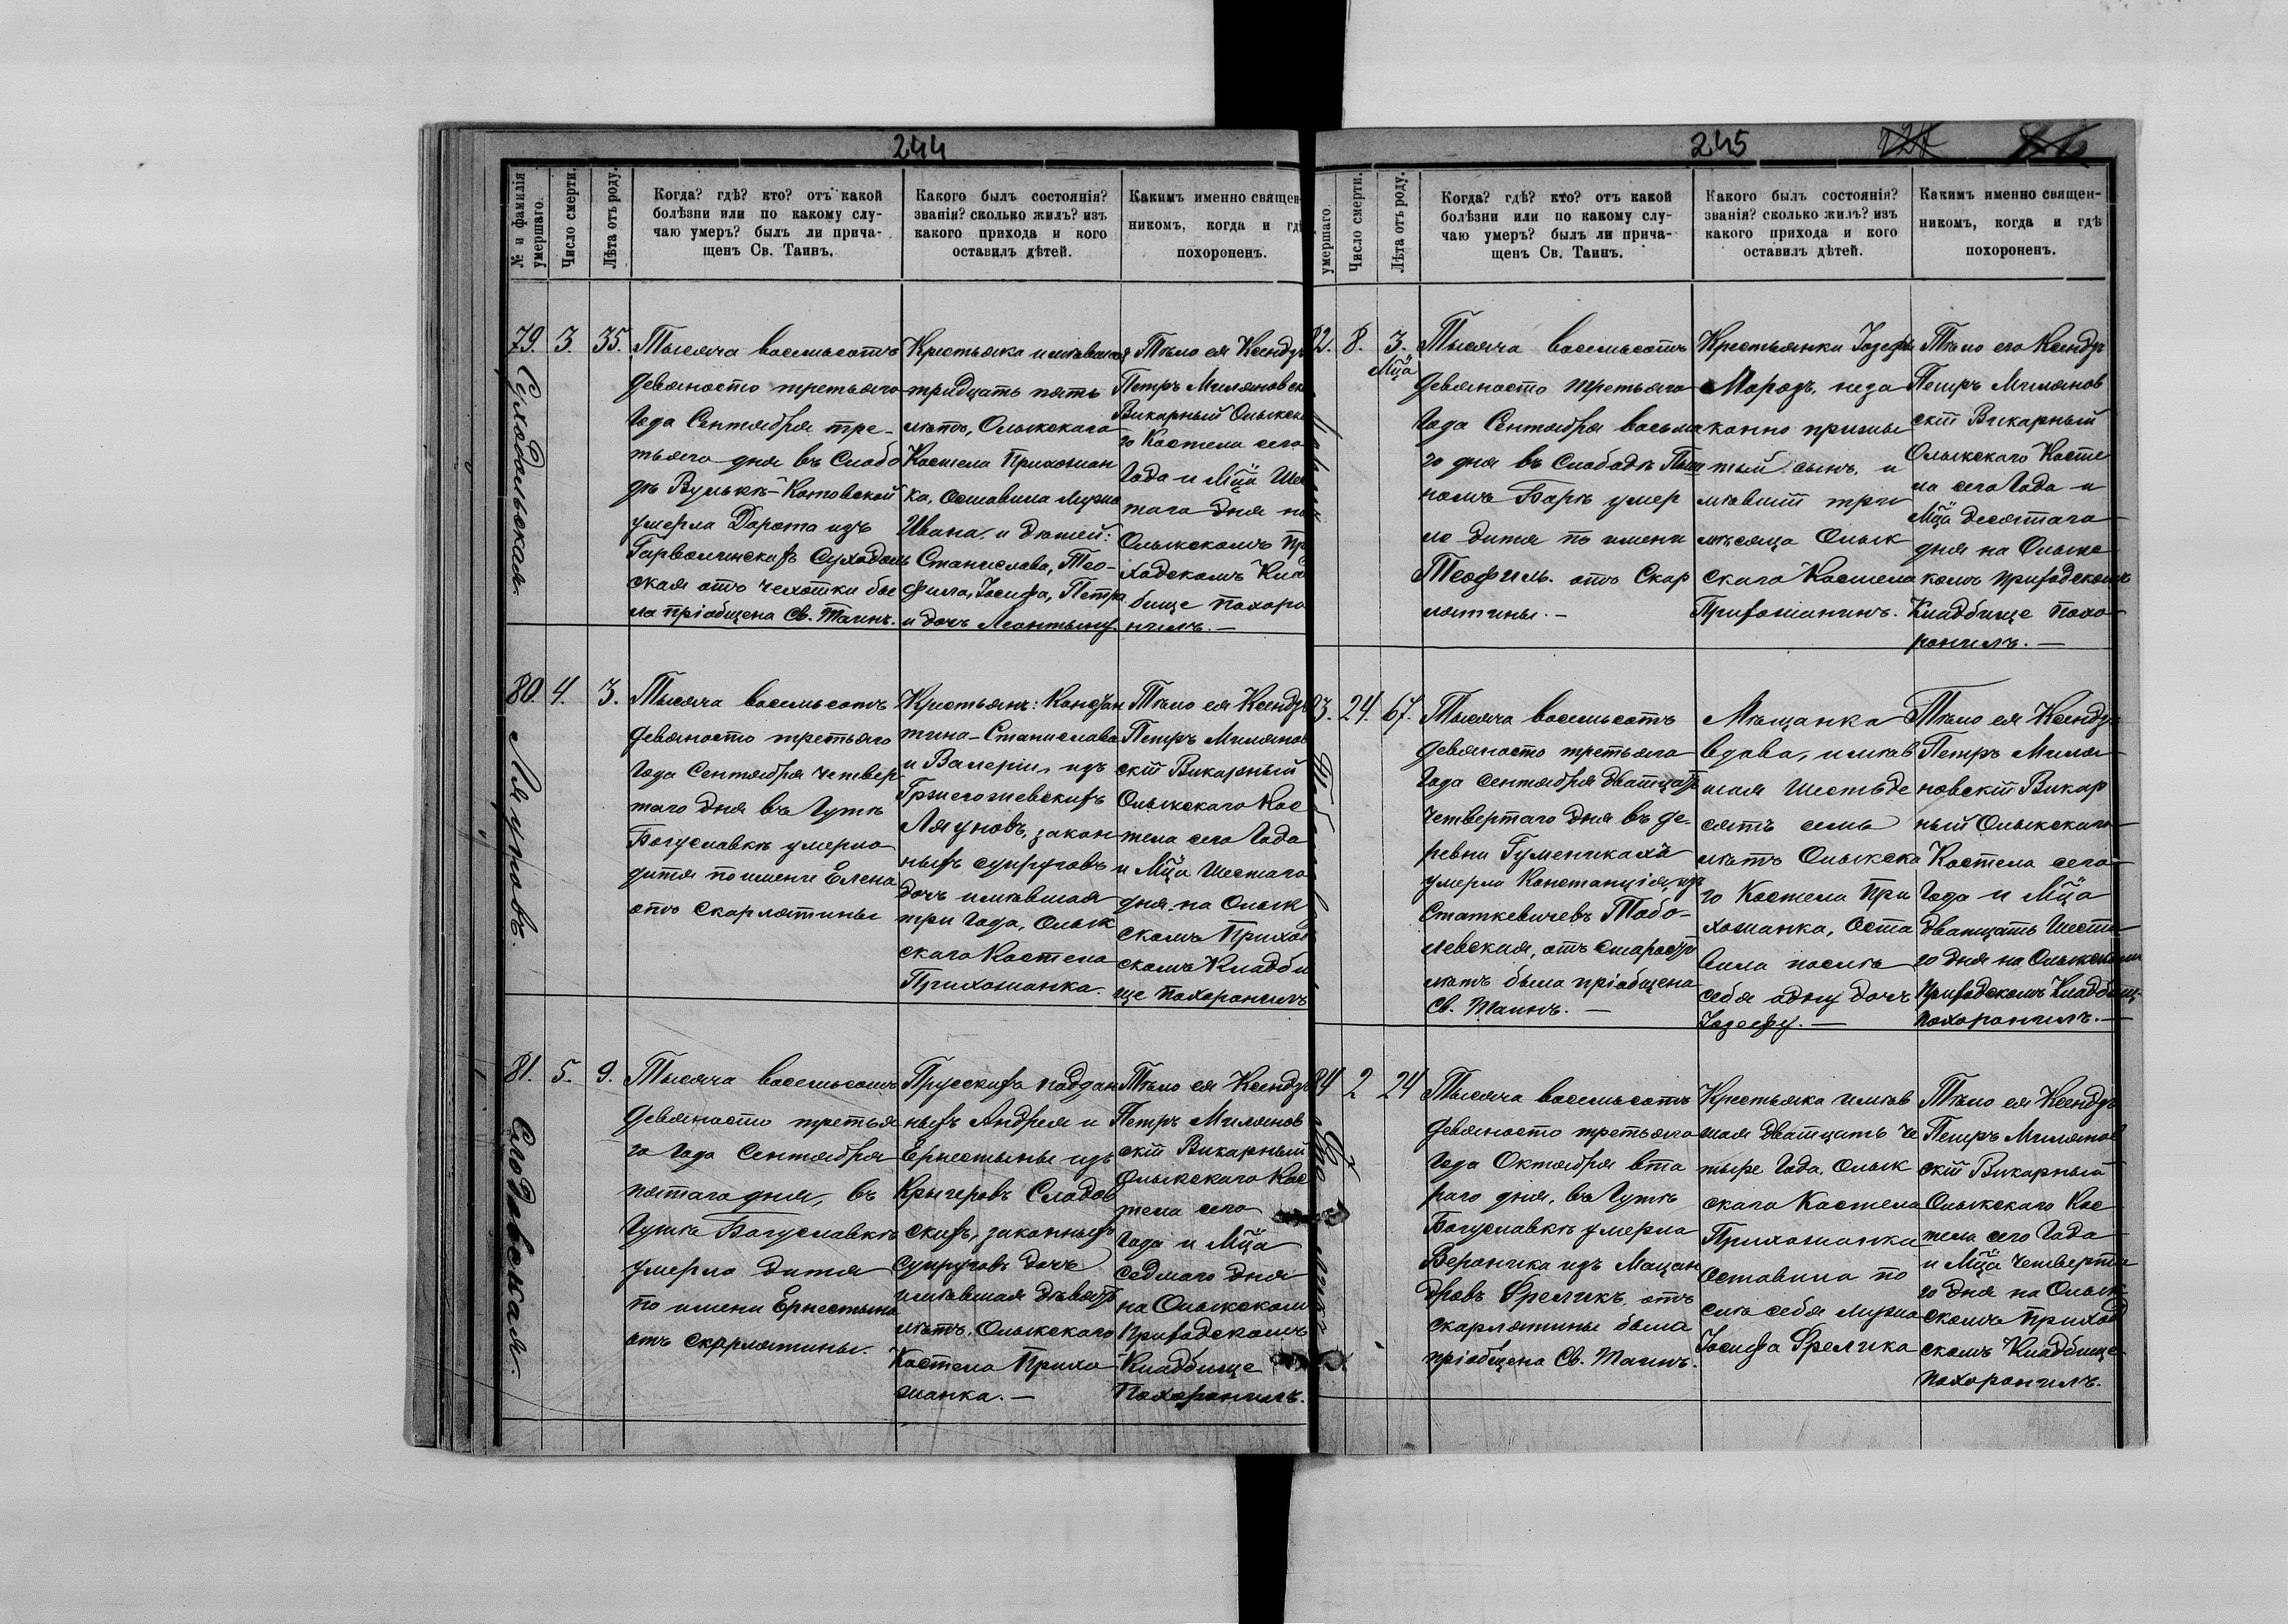 244
№ и фамилія умершаго.
Число смерти.
Лѣта отъ роду.
Когда? гдѣ? кто? отъ какой
болѣзни или по какому слу-
чаю умеръ? былъ ли прича-
щенъ Св. Таинъ.
Какого былъ состоянія?
званія? сколько жилъ? изъ
какого прихода и кого
оставилъ дѣтей.
Какимъ именно священ-
никомъ, когда и гдѣ
похороненъ.
79.
Суходольская.
3.
35.
Тысяча восемьсотъ
девяносто третьяго
Года Сентября тре-
тьяго дня въ Слобо
дѣ Вулькѣ-Котовской
умерла Дорота изъ
Гарволинскихъ Суходоль
ская отъ чехотки бы
ла пріобщена Св. Таинъ.
Крестьяка имѣвшая
тридцать пять
лѣтъ, Олыкскаго
Костела Прихожан
ка, оставила мужа
Ивана и дѣтей:
Станислава, Тео-
фила, Іосифа, Петра
и дочь Леонтыну
Тѣло ея Ксендзъ
Петръ Миляновск
Викарный Олыкска
го Костела сего
Года и Мца Шес
таго дня на
Олыкскомъ При
ходскомъ Клад
бище похоро
нилъ. —
80.
Ляуновъ.
4.
3.
Тысяча восемьсотъ
девяносто третьяго
Года Сентября четвер
таго дня въ Гутѣ
Богуславкѣ умерло
дитя по имени Елена
отъ скарлятины
Крестьянъ: Констан
тина-Станислава
и Валеріи, изъ
Гржегожевскихъ
Ляуновъ, закон
ныхъ супруговъ
дочь имѣвшая
три Года, Олык
скаго Костела
Прихожанка.
Тѣло ея Ксендзъ
Петръ Милянов
скій Викарный
Олыкскаго Кос
тела сего Года
и Мца Шестаго
дня на Олык
скомъ Приход
скомъ Кладби
ще похоронилъ
81.
Слодовская.
5.
9.
Тысяча восемьсотъ
девяносто третья
го Года Сентября
пятаго дня, въ
Гутѣ Богуславкѣ
умерло дитя
по имени Ернестына
отъ скарлятины.
Прусскихъ поддан
ныхъ Андрея и
Ернестыны изъ
Крыгеровъ Слодов
скихъ, законныхъ
супруговъ дочь
имѣвшая девять
лѣтъ, Олыкскаго
Костела Прихо
жанка. —
Тѣло ея Ксендзъ
Петръ Милянов
скій Викарный
Олыкскаго Кос
тела сего
Года и Мца
седмаго дня
на Олыкском
Приходскомъ
Кладбище
Похоронилъ.
245
умершаго.
Число смерти.
Лѣта отъ роду.
Когда? гдѣ? кто? отъ какой
болѣзни или по какому слу-
чаю умеръ? былъ ли прича-
щенъ Св. Таинъ.
Какого былъ состоянія?
званія? сколько жилъ? изъ
какого прихода и кого
оставилъ дѣтей.
Какимъ именно священ-
никомъ, когда и гдѣ
похороненъ.
82.
8.
3.
Мца
Тысяча восемьсотъ
девяносто третьяго
Года Сентября восьма
го дня въ Слободѣ
номъ Боркѣ умер
ло дитя по имени
Теофиль. отъ Скар
лятины. —
Крестьянки Іозефы
Мородъ, неза
конно прижи
тый сынъ. и
мѣвшій три
мѣсяца Олык
скаго Костела
Прихожанинъ.
Тѣло его Ксендзъ
Петръ Милянов
скій Викарный
Олыкскаго Косте
ла сего Года и
Мца десятаго
дня на Олыкс
комъ приходскомъ
Кладбище похо-
ронилъ. —
83.
24.
67.
Тысяча восемьсотъ
девяносто третьяго
Года Сентября двадцать
четвертаго дня въ де-
ревни Гуменикахъ
умерла Констанція изъ
Статкевичевъ Тобо-
левская, отъ старости
лѣтъ была пріобщена
Св. Таинъ. —
Мѣщанка
вдова, имѣв
шая шестьде
сятъ семь
лѣтъ Олыкска
го Костела При
хожанка, оста
вила послѣ
себя одну дочь
Іозефу. —
Тѣло ея Ксендзъ
Петръ Миля-
новскій Викар
ный Олыкскаго
Костела сего
Года и Мца
двадцать шеста
го дня на Олыкскомъ
Приходскомъ Кладбищ
похоронилъ. —
84
2
24
Тысяча восемьсотъ
девяносто третьяго
Года Октября вта
раго дня, въ Гутѣ
Богуславкѣ умерла
Вероника изъ Мацан
дровъ Фреликъ отъ
скарлятины была
пріобщена Св. Таинъ.
Крестьяка имѣв
шая двадцать че
тыре Года, Олык
скаго Костела
Прихожанка
Оставила по
слѣ себя мужа
Іосифа Фрелика
Тѣло ея Ксендзъ
Петръ Милянов
скій Викарный
Олыкскаго Кос
тела сего Года
и Мца Четверта
го дня на Олык-
скомъ приход
скомъ Кладбище
похоронилъ.